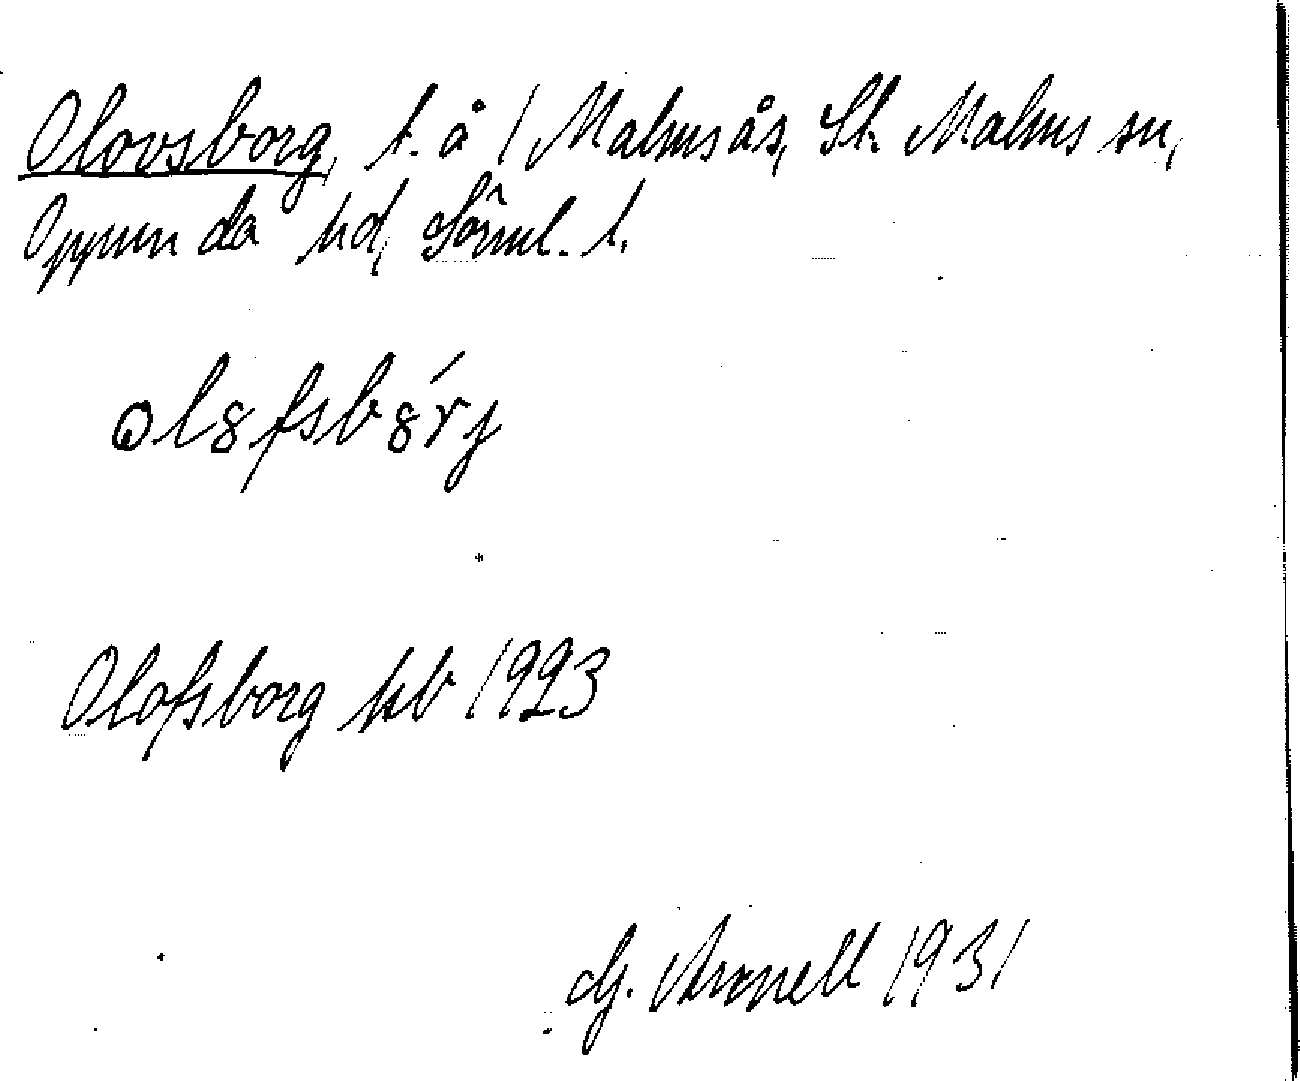 Olovsborg, t. å 1 Malmsås, St. Malms sn,
Oppunda hd, Söml. l.
olȣfsbȣ́rj
Olofsborg kb 1923
G. Arnell 1931